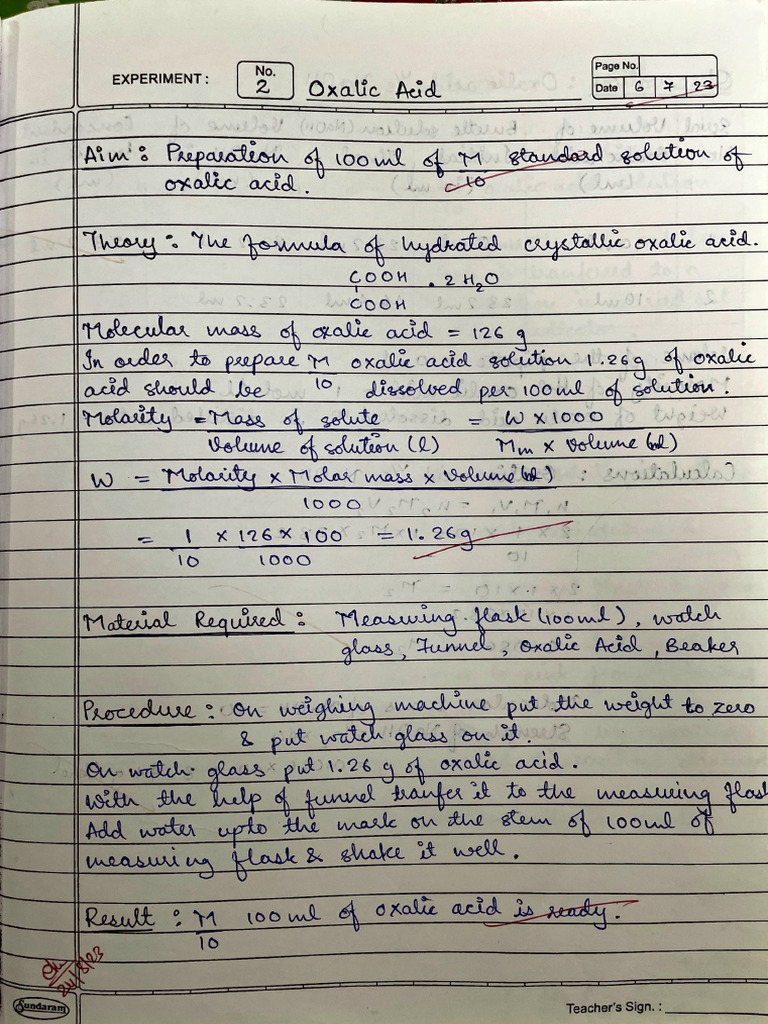 EXPERIMENT : No. 2 Oxalic Acid Page No.
Date 6 7 23
Aim : Preparation of 100 ml of M/10 standard solution of
oxalic acid.
Theory : The formula of hydrated crystallic oxalic acid.
COOH . 2H₂O
COOH
Molecular mass of oxalic acid = 126 g
In order to prepare M/10 oxalic acid solution 1.26g of oxalic
acid should be dissolved per 100 ml of solution.
Molarity = Mass of solute / Volume of solution (l) = W × 1000 / Mm × Volume (ml)
W = Molarity × Molar mass × Volume (ml) / 1000
= 1/10 × 126 × 100 / 1000 = 1.26g
Material Required : Measuring flask (100 ml), watch
glass, Funnel, Oxalic Acid, Beaker
Procedure : On weighing machine put the weight to zero
& put watch glass on it.
On watch glass put 1.26 g of oxalic acid.
With the help of funnel tranfer it to the measuring flask
Add water upto the mark on the stem of 100 ml of
measuring flask & shake it well.
Result : M/10 100 ml of oxalic acid is ready.
24/8/23
Sundaram Teacher's Sign. :